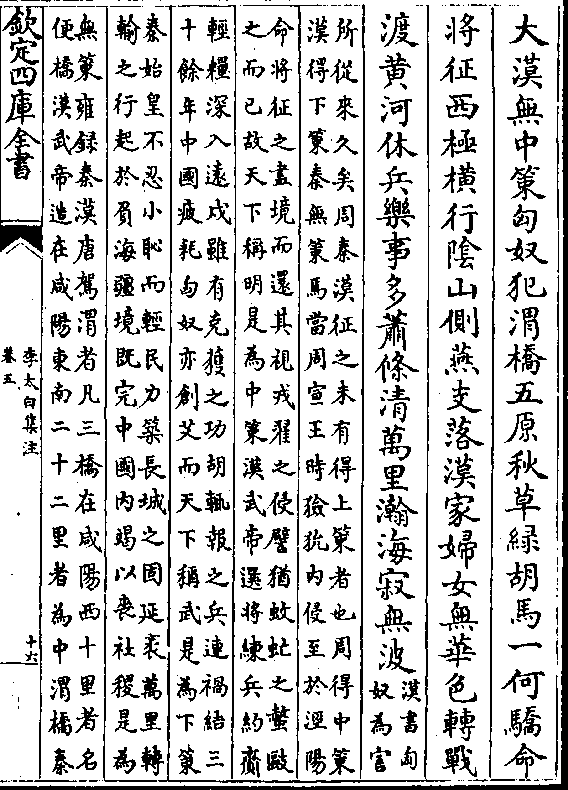 大漢無中策匈奴犯渭橋五原秋草緑胡馬一何驕命
將征西極横行陰山側燕支落漢家婦女無華色轉戰
渡黄河休兵樂事多蕭條清萬里瀚海寂無波
漢書匈
奴為害
所從來久矣周秦漢征之未有得上策者也周得中策
漢得下策秦無策焉當周宣王時獫狁内侵至於涇陽
命將征之盡境而還其視戎翟之侵譬猶蚊虻之螫敺
之而已故天下稱明是為中策漢武帝選將練兵約齎
輕糧深入遠戍雖有克獲之功胡輒報之兵連禍結三
十餘年中國疲耗匈奴亦創艾而天下稱武是為下策
秦始皇不忍小恥而輕民力築長城之固延袤萬里轉
輸之行起於負海疆境既完中國内竭以喪社稷是為
無策雍録秦漢唐駕渭者凡三橋在咸陽西十里者名
便橋漢武帝造在咸陽東南二十二里者為中渭橋秦
欽定四庫全書
李太白集注
卷五
十六